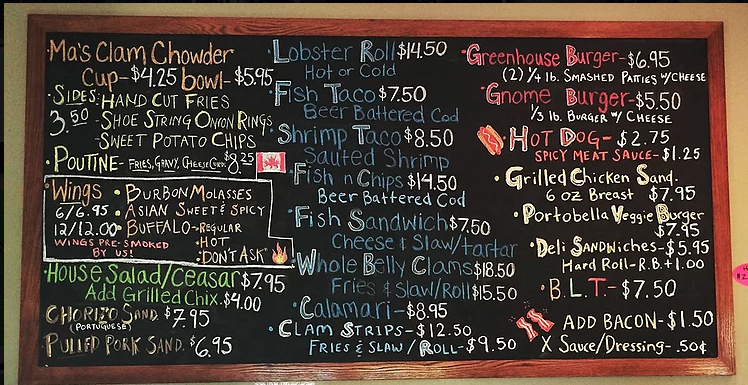 ·Ma's Clam Chowder
Cup-$4.25 bowl-$5.95
·SIDES: HAND CUT FRIES
3.50 -SHOE STRING ONION RINGS
-SWEET POTATO CHIPS
·POUTINE- FRIES, GRAVY, CHEESE CURD. $8.25
·Wings · BURBON MOLASSES
6/6.95 · ASIAN SWEET & SPICY
12/12.00 · BUFFALO -REGULAR
WINGS PRE-SMOKED BY US! ·HOT
·DON'T ASK"
·House Salad/Ceasar $7.95
Add Grilled Chix. $4.00
CHORIZO SAND. $7.95
(PORTUGUESE)
PULLED PORK SAND. $6.95
·Lobster Roll $14.50
Hot or Cold
·Fish Taco $7.50
Beer Battered Cod
·Shrimp Taco $8.50
Sauted Shrimp
·Fish n Chips $14.50
Beer Battered Cod
·Fish Sandwich $7.50
Cheese & Slaw/tartar
·Whole Belly Clams $18.50
Fries & Slaw/Roll $15.50
·Calamari- $8.95
·CLAM STRIPS- $12.50
FRIES & SLAW / ROLL- $9.50
·Greenhouse Burger- $6.95
(2) 1/4 lb. SMASHED PATTIES W/CHEESE
·Gnome Burger- $5.50
1/3 lb. BURGER W/ CHEESE
·HOT DOG- $2.75
SPICY MEAT SAUCE- $1.25
·Grilled Chicken Sand.
6 oz Breast $7.95
·Portobella Veggie Burger
$7.95
·Deli SANDWiches- $5.95
Hard Roll- R.B. + 1.00
·B.L.T.- $7.50
ADD BACON- $1.50
X Sauce/Dressing- .50¢